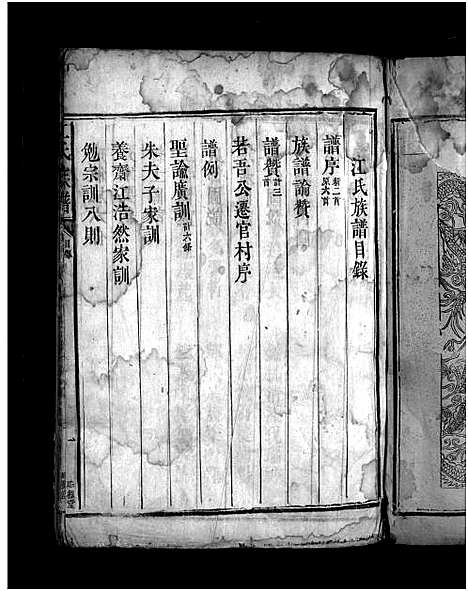 江氏族譜目錄
譜序 新二首 原六首
族譜論贊
譜贊 計三首
若吾公遷官村序
譜例
聖諭廣訓 計六條
朱夫子家訓
養齋江浩然家訓
勉宗訓八則
氏族譜